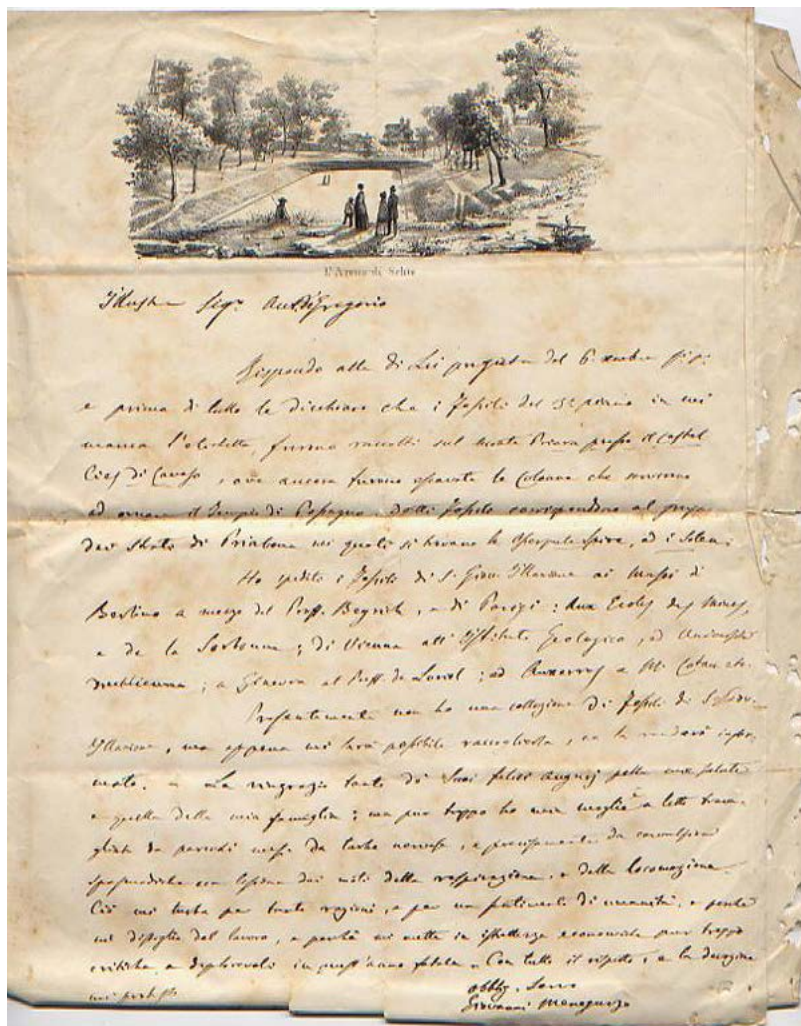 L'Arena di Schio
Illustre Sigr. Ant. DiGregorio
Rispondo alla di Lei pregiata del 6 xembre p: p:
e prima di tutto le dicchiaro che i Fossili del 3° piano in cui
manca l'etichetta furono raccolti sul Monte presso il Castel
Cies di Cavaso, ove ancora furono escavate le Colonne che
ad ornare il Tempio di Possagno. Detti Fossili corrispondono al
Strati di Priabona nei quali si trovano la Serpula spira, ed i
Ho spedito i Fossili di S. Giov. Illarione ai Musei di
Berlino a mezzo del Proff. Beyrich, e di Parigi: Aux Ecoles des Mines,
e de la Sorbonne; di Vienna all'Istituto Geologico, ed Università
a Ginevra al Proff. de Loriol; ed Auxerres a M. Cotteau
Presentemente non ho una collezione di Fossili di S. Giov.
Illarione, ma appena mi sarà possibile raccoglierla, ne la renderò
La ringrazio tanto di Suoi felici augurj pella mia salute
e quella della mia famiglia; ma pur troppo ho mia moglie a letto
da parecchi mesi da turbe nervose, e precisamente da convulsioni
spasmodiche con lesione dei moti della respirazione, e della locomozione.
Ciò mi turba per tante ragioni, e per un sentimento di umanità, e perchè
mi distoglie dal lavoro, e perchè mi mette in istrettezze economiche pur troppo
critiche e deplorevoli in quest'anno fatale. Con tutto il rispetto, e la devozione
mi protesto
obblig. Servo
Giovanni Meneguzzo